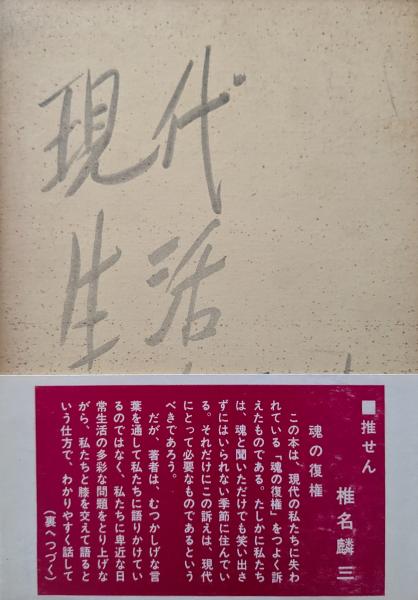 現代
生活
■推せん　椎名麟三
魂の復権
この本は、現代の私たちに失わ
れている「魂の復権」をつよく訴
えたものである。たしかに私たち
は、魂と聞いただけでも笑い出さ
ずにはいられない季節に住んでい
る。それだけにこの訴えは、現代
にとって必要なものであるという
べきであろう。
だが、著者は、むつかしげな言
葉を通して私たちに語りかけてい
るのではなく、私たちに卑近な日
常生活の多彩な問題をとり上げな
がら、私たちと膝を交えて語ると
いう仕方で、わかりやすく話して
（裏へつづく）